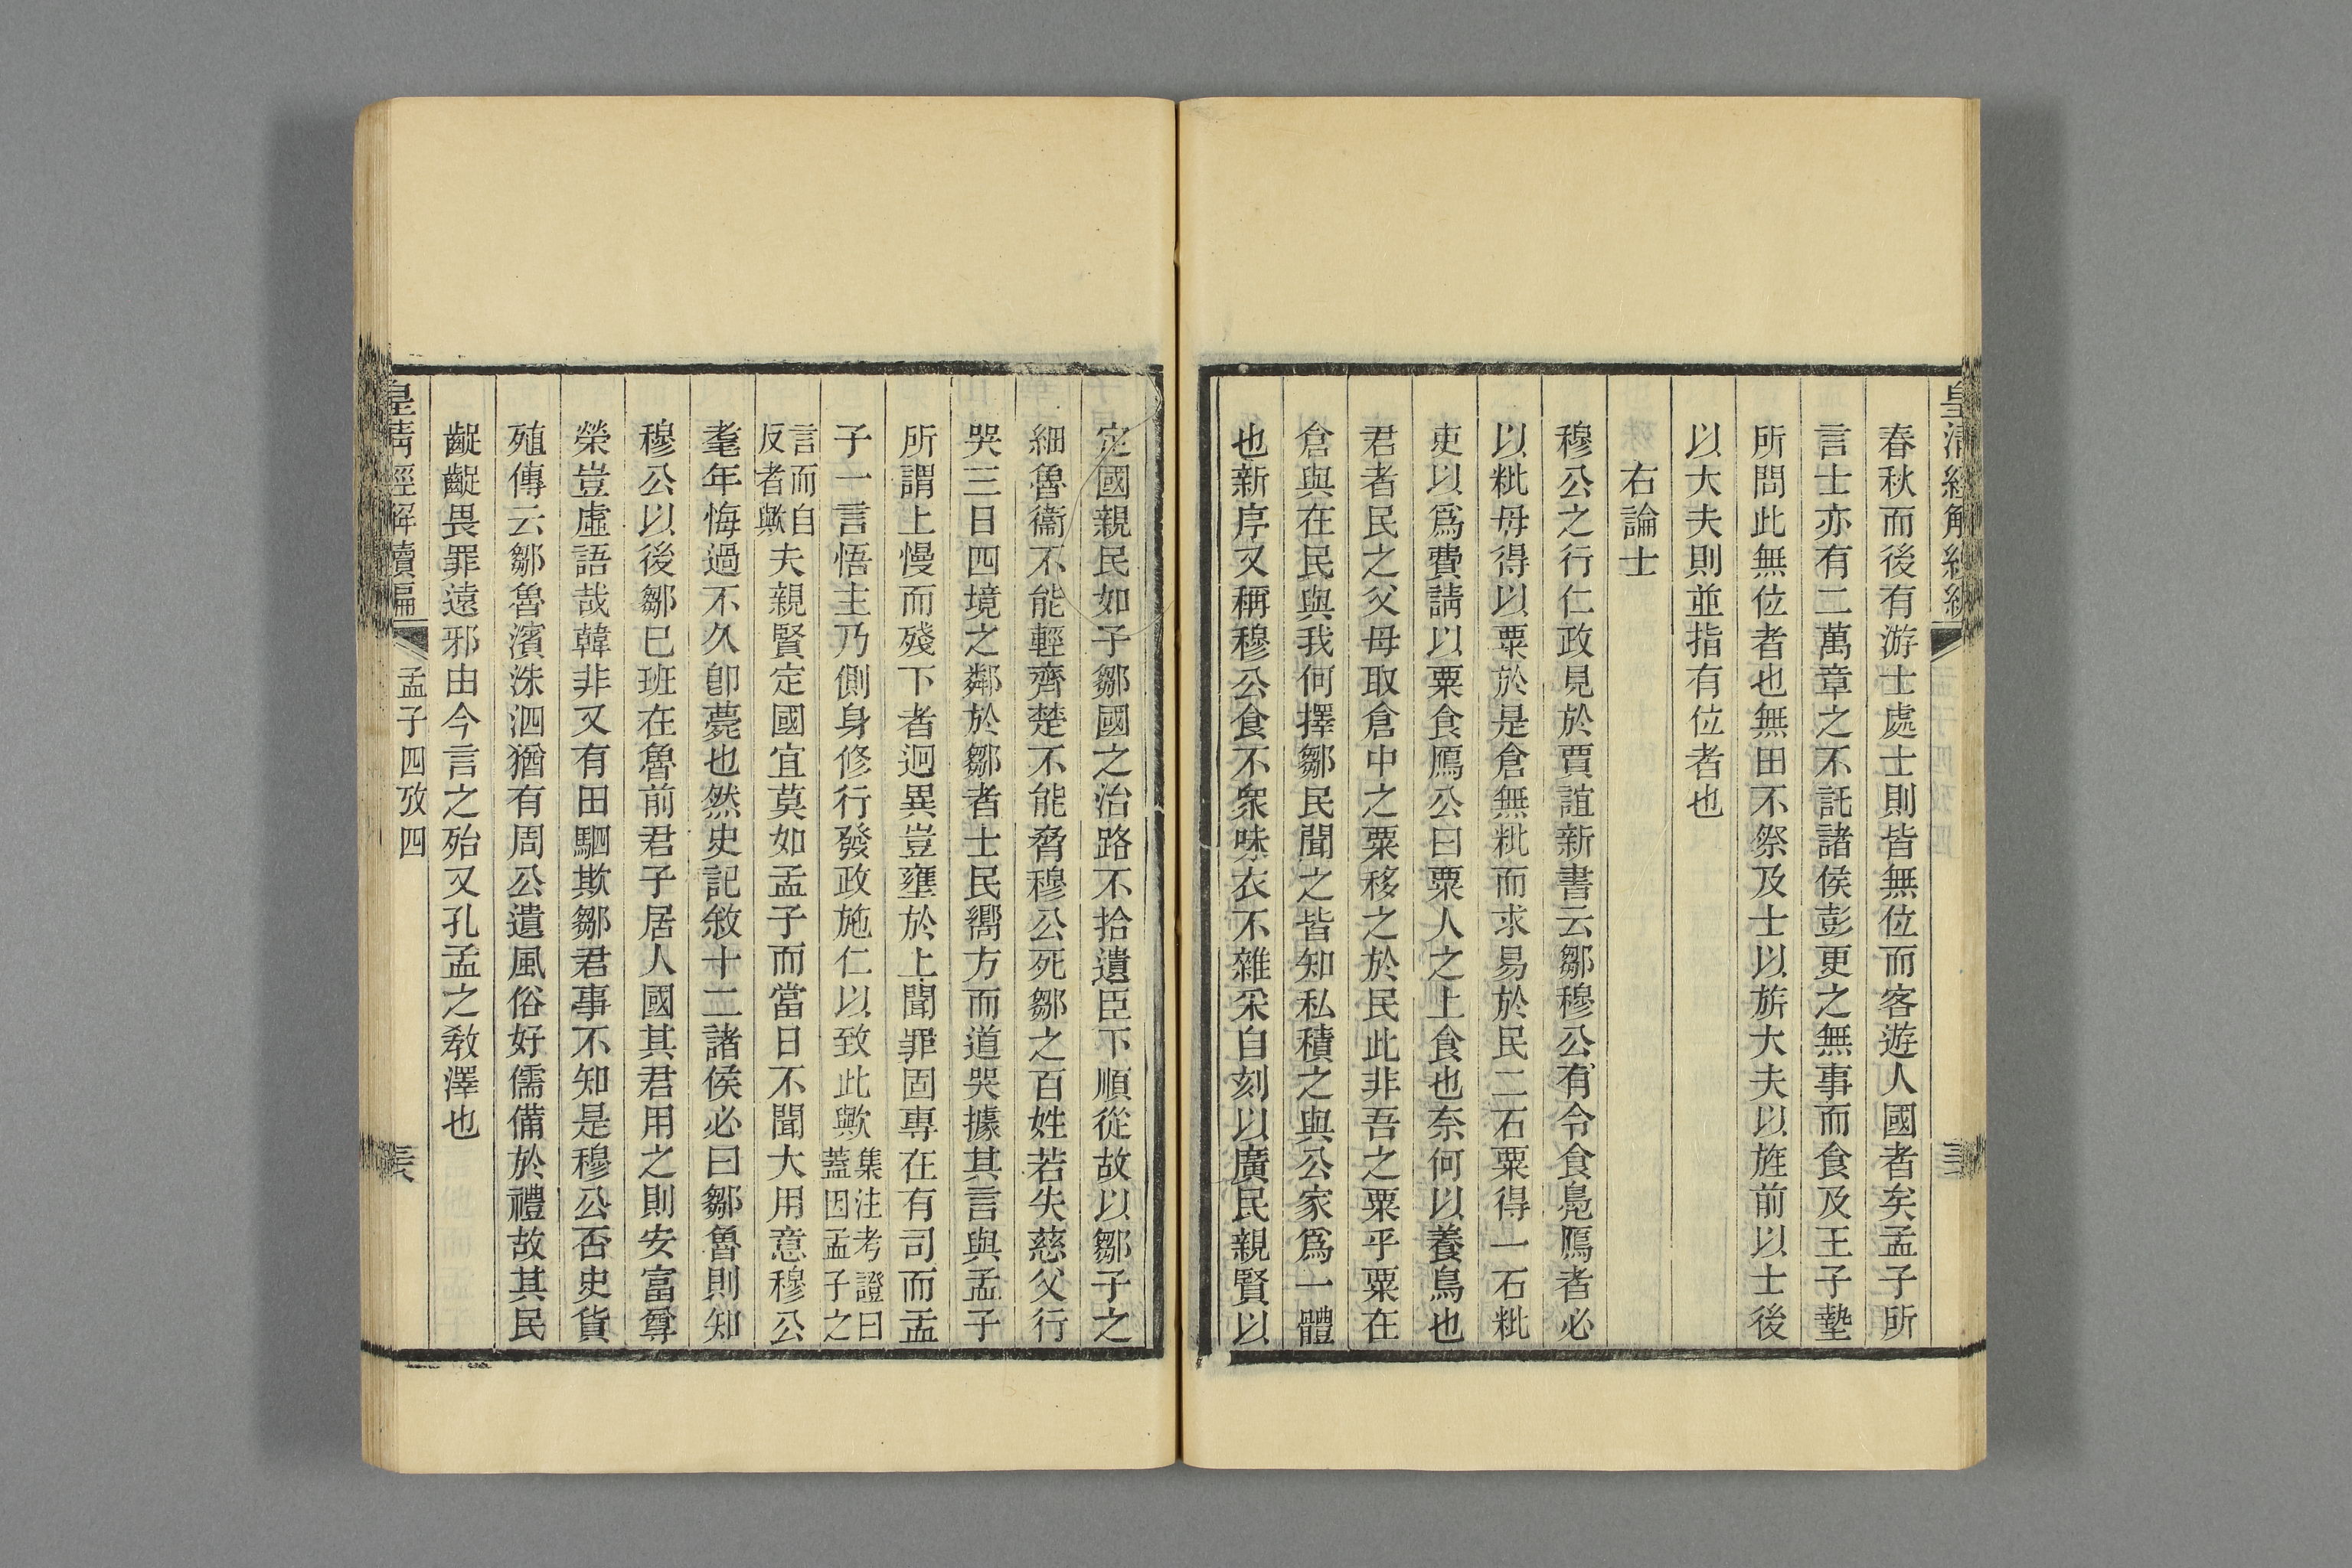 春秋而後有游士處士則皆無位而客遊人國者矣孟子所
言士亦有二萬章之不託諸侯彭更之無事而食及王子墊
所問此無位者也無田不祭及士以旂大夫以旌前以士後
以大夫則並指有位者也
右論士
穆公之行仁政見於賈誼新書云鄒穆公有令食鳧鴈者必
以粃毋得以粟於是倉無粃而求易於民二石粟得一石粃
吏以爲費請以粟食鴈公曰粟人之上食也奈何以養鳥也
君者民之父母取倉中之粟移之於民此非吾之粟乎粟在
倉與在民與我何擇鄒民聞之皆知私積之與公家爲一體
也新序又稱穆公食不衆味衣不雜采自刻以廣民親賢以
定國親民如子鄒國之治路不拾遺臣下順從故以鄒子之
細魯衞不能輕齊楚不能脅穆公死鄒之百姓若失慈父行
哭三日四境之鄰於鄒者士民嚮方而道哭據其言與孟子
所謂上慢而殘下者迥異豈壅於上聞罪固專在有司而孟
子一言悟主乃側身修行發政施仁以致此歟集注考證曰
蓋因孟子之
言而自
反者歟夫親賢定國宜莫如孟子而當日不聞大用意穆公
耄年悔過不久卽薨也然史記敘十二諸侯必曰鄒魯則知
穆公以後鄒已班在魯前君子居人國其君用之則安富尊
榮豈虛語哉韓非又有田駟欺鄒君事不知是穆公否史貨
殖傳云鄒魯濱洙泗猶有周公遺風俗好儒備於禮故其民
齪齪畏罪遠邪由今言之殆又孔孟之敎澤也
皇清經解續編
孟子四攷四